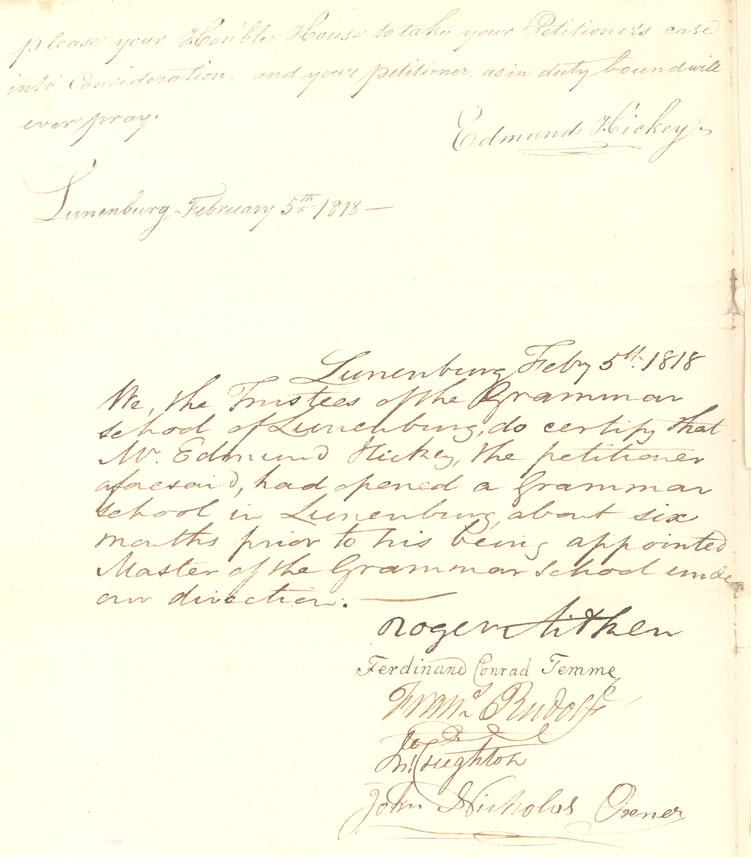 please your Honble House to take your Petitioner's case
into Consideration, and your petitioner, as in duty bound will
ever pray.
Edmund Hickey
Lunenburg February 5th 1818 —
Lunenburg Feby 5th. 1818
We, the Trustees of the Grammar
school of Lunenburg, do certify that
Mr. Edmund Hickey, the petitioner
aforesaid, had opened a Grammar
school in Lunenburg, about six
months prior to his being appointed
Master of the Grammar School unde
our direction. —
Roger Aitken
Ferdinand Conrad Temme
Frans Rudolf
Creighton
John Nicholas Oxner